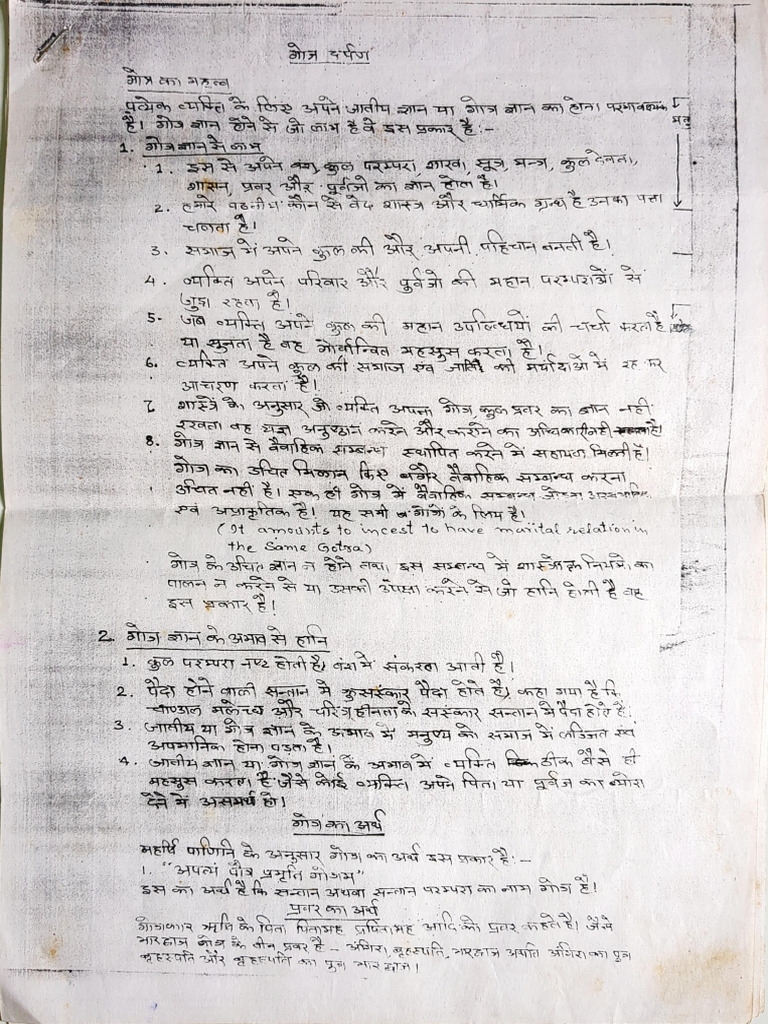 गोत्र दर्पण
गोत्र का महत्व
प्रत्येक व्यक्ति के लिए अपने जातीय ज्ञान या गोत्र ज्ञान का होना परमावश्यक
है। गोत्र ज्ञान होने से जो लाभ है वे इस प्रकार है :-
1. गोत्र ज्ञान से लाभ
1. इस से अपने वंश, कुल परम्परा, शाखा, सूत्र, मन्त्र, कुल देवता,
शासन, प्रवर और पूर्वजो का ज्ञान होता है।
2. हमारे पठनीय कौन से वेद शास्त्र और धार्मिक ग्रन्थ है उनका पता
चलता है।
3. समाज में अपने कुल की और अपनी पहिचान बनती है।
4. व्यक्ति अपने परिवार और पुर्वजो की महान परम्पराओं से
जुड़ा रहता है।
5- जब व्यक्ति अपने कुल की महान उपलब्धियों की चर्चा करता है
या सुनता है वह गोर्वान्वित महसुस करता है।
6. व्यक्ति अपने कुल की समाज एंव जाति की मर्यादाओं में रह कर
आचरण करता है।
7. शास्त्रों के अनुसार जो व्यक्ति अपना गोत्र, कुल प्रवर का ज्ञान नही
रखता वह यज्ञ अनुष्ठान करने और कराने का अधिकारी नही है।
8. गोत्र ज्ञान से वैवाहिक सम्बन्ध स्थापित करने में सहायता मिलती है।
गोत्र का उचित मिलान किए बगैर वैवाहिक सम्बन्ध करना
उचित नहीं है। एक ही गोत्र में वैवाहिक सम्बन्ध
एवं अप्राकृतिक है। यह सभी के लिए है।
(It amounts to incest to have marital relation in
the Same Gotra)
गोत्र के उचित ज्ञान न होने तथा इस सम्बन्ध में शास्त्रोक्त नियमो का
पालन न करने से या उसकी उपेक्षा करने से जो हानि होती है वह
इस प्रकार है।
2. गोत्र ज्ञान के अभाव से हानि
1. कुल परम्परा नष्ट होती है, वंश मे संकरता आती है।
2. पैदा होने वाली सन्तान मे कुसंस्कार पैदा होते है, कहा गया है कि
चाण्डाल मलेच्छ और चरित्रहीनता के संस्कार सन्तान में पैदा होते है।
3. जातीय या गोत्र ज्ञान के अभाव में मनुष्य को समाज में लज्जित एवं
अपमानित होना पड़ता है।
4. जातीय ज्ञान या गोत्र ज्ञान के अभाव में व्यक्ति ठीक वैसे ही
महसुस करता है जैसे कोई व्यक्ति अपने पिता या पूर्वज का ब्योरा
देने में असमर्थ हो।
गोत्र का अर्थ
महर्षि पाणिनि के अनुसार गोत्र का अर्थ इस प्रकार है :-
1. "अपत्यं पौत्र प्रमृति गोत्रम"
इस का अर्थ है कि सन्तान अथवा सन्तान परम्परा का नाम गोत्र है।
प्रवर का अर्थ
गोत्रकार ऋषि के पिता पितामह प्रपितामह आदि को प्रवर कहते है। जैसे
भारद्वाज गोत्र के तीन प्रवर है - अंगिरा, बृहस्पति, भारद्वाज अर्थात अंगिरा का पुत्र
बृहस्पति और बृहस्पति का पुत्र भारद्वाज।